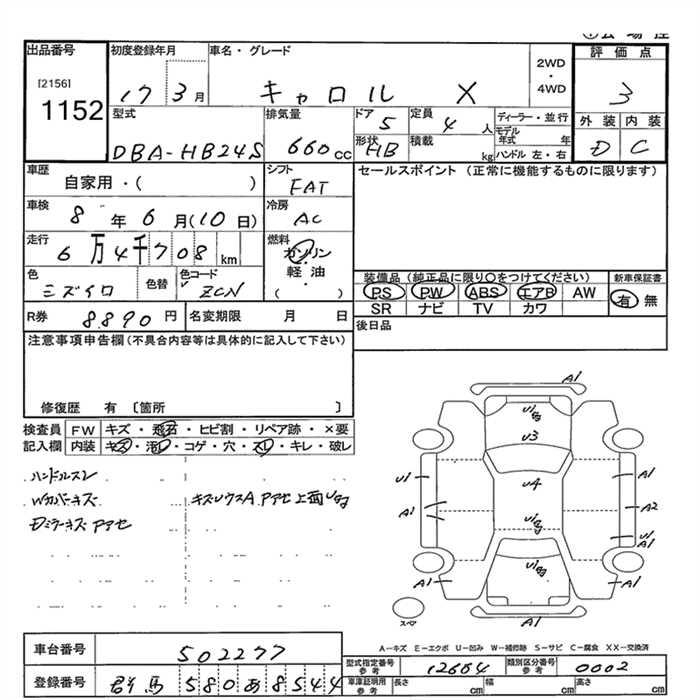 出品番号
[2156]
1152
初度登録年月
17 3月
車名・グレード
キャロル X
2WD
・
4WD
評価点
3
外装 内装
D C
型式
DBA-HB24S
排気量
660cc
ドア 5
形状 HB
定員 4 人
積載 kg
ディーラー・並行
モデル年式 年
ハンドル 左・右
車歴
自家用・( )
シフト
FAT
セールスポイント (正常に機能するものに限ります)
車検
8年6月(10日)
冷房
AC
走行
6万4千708km
燃料
ガソリン
軽油
( )
色
ミズイロ
色替
色コード
ZCN
装備品 (純正品に限り○をつけてください)
新車保証書
PS PW ABS エアB AW
SR ナビ TV カワ
有 無
R券 8890円
名変期限 月 日
後日品
注意事項申告欄(不具合内容等は具体的に記入して下さい)
修復歴 有 〔箇所 〕
検査員記入欄
FW キズ・飛石・ヒビ割・リペア跡・×要
内装 キズ・汚レ・コゲ・穴・スレ・キレ・破レ
ハンドルスレ
Wカバーキズ
Dミラーキズ アアセ
A1
U3
U4
U1
A1
A1
A1
A2
U1
A1
A1
A1
A1
スペア
A-キズ E-エクボ U-凹み W-補修跡 S-サビ C-腐食 XX-交換済
車台番号 502277
登録番号 群馬 580 あ 8544
型式指定番号 参考 12664
類別区分番号 参考 0002
車庫証明用 参考 長さ cm 幅 cm 高さ cm